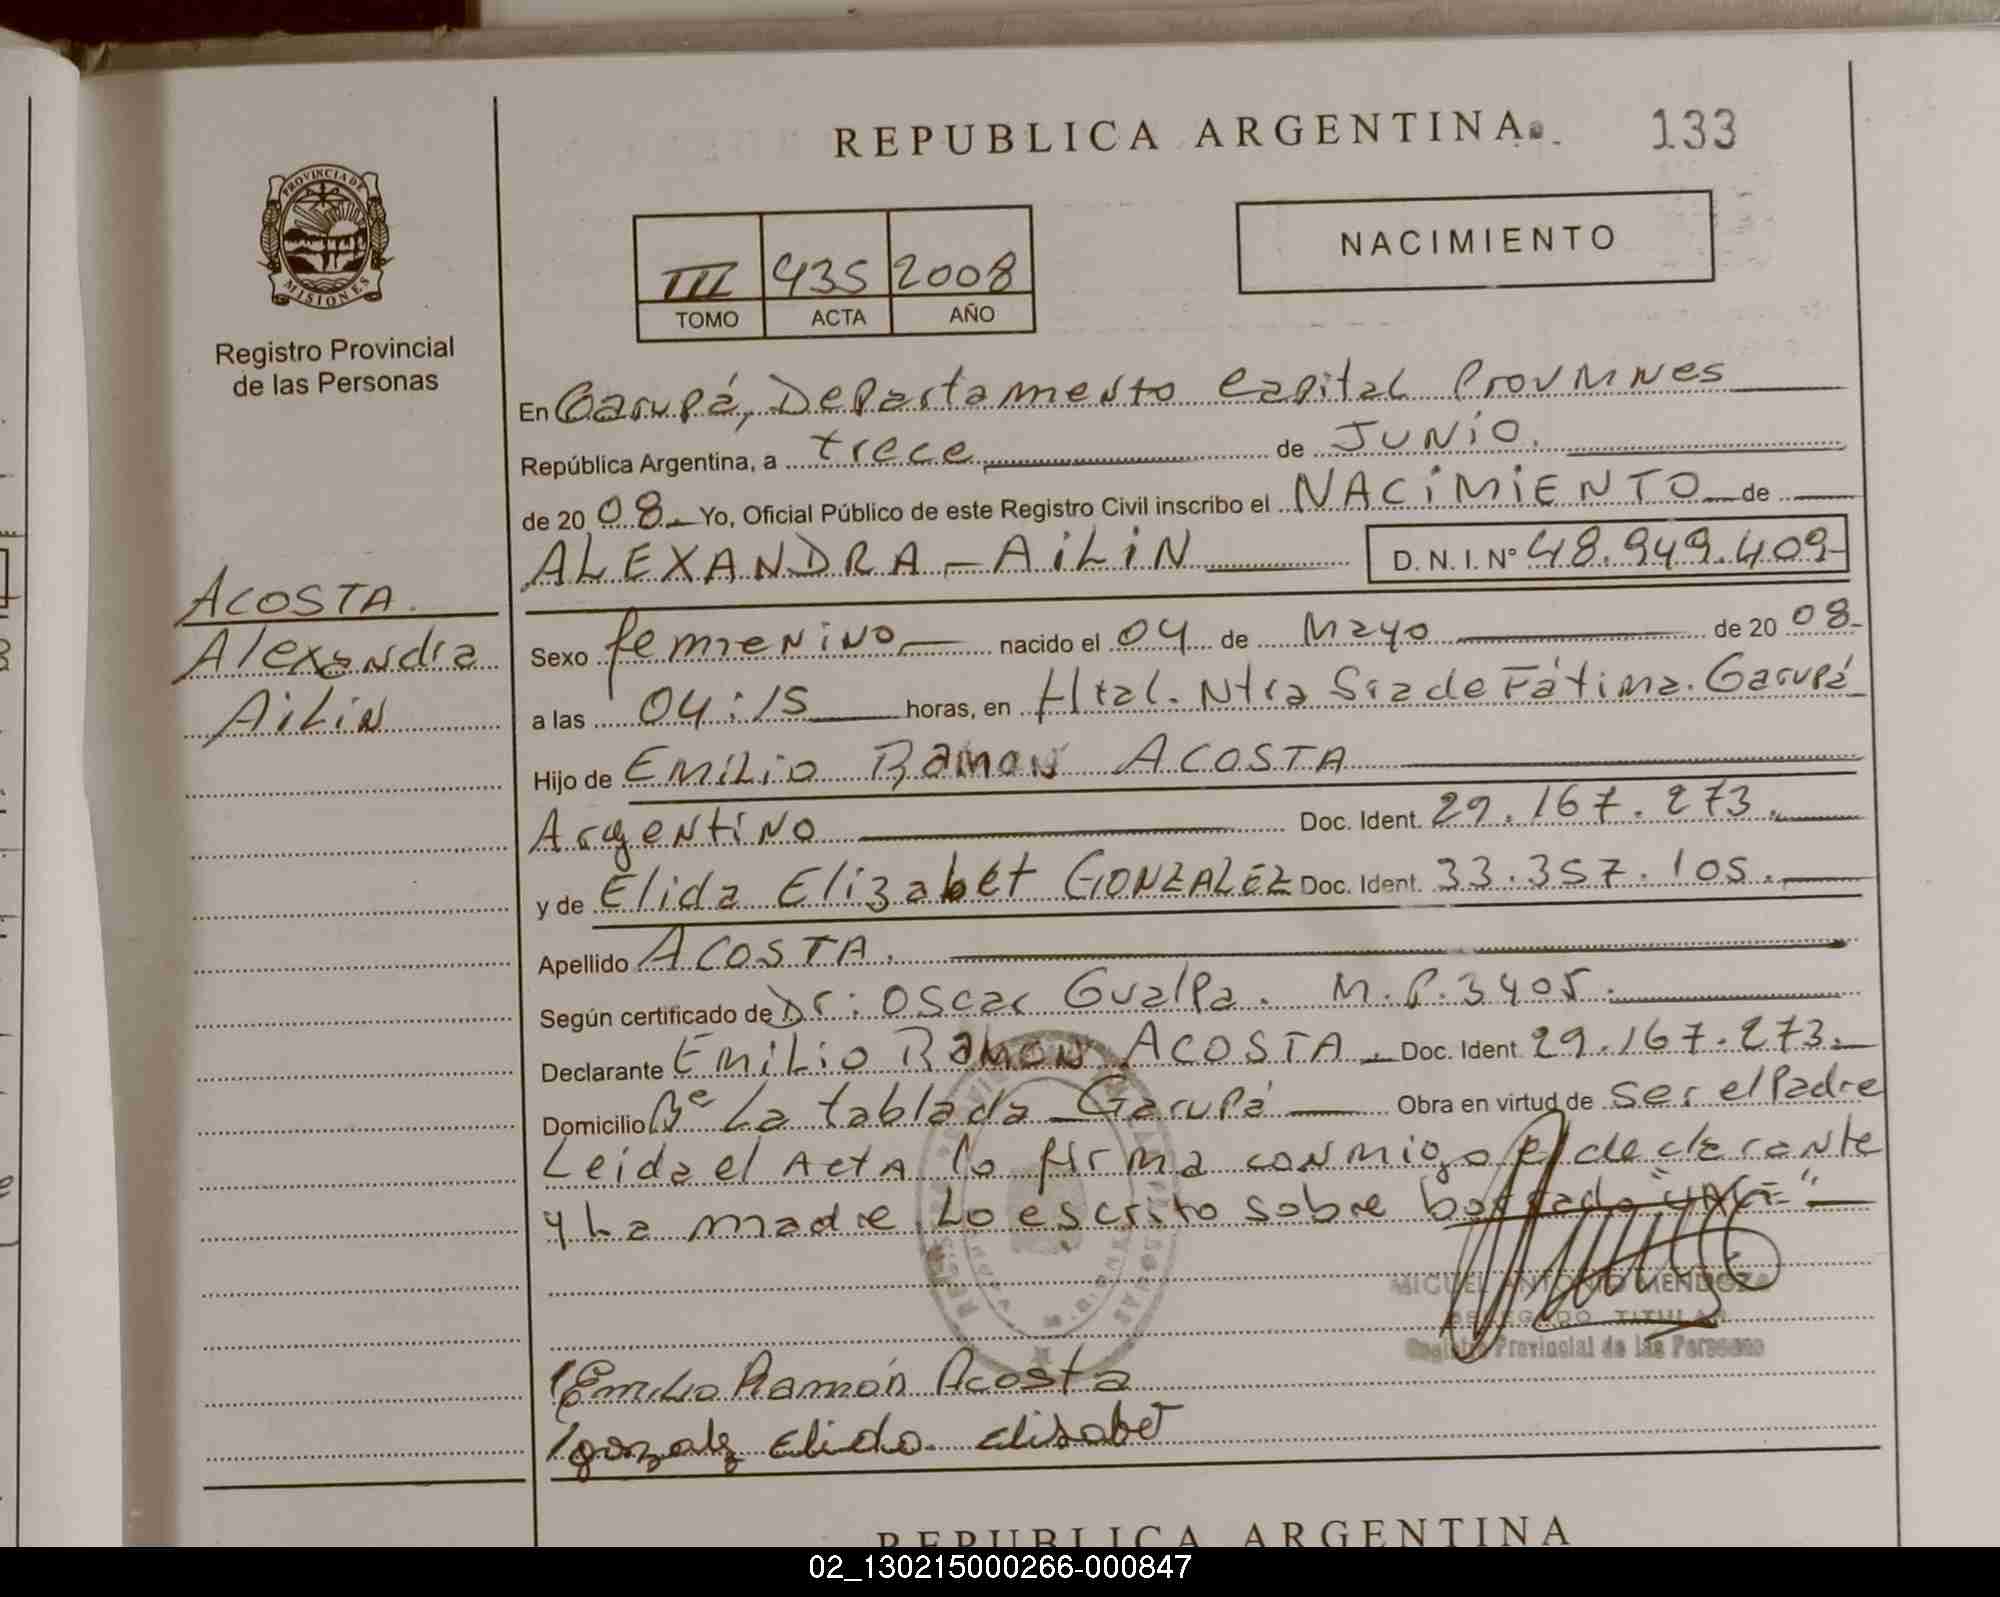 REPUBLICA ARGENTINA 133
PROVINCIA DE
MISIONES
Registro Provincial
de las Personas
NACIMIENTO
III 435 2008
TOMO ACTA AÑO
En Garupá, Departamento Capital Prov Mnes
República Argentina, a trece de JUNIO.
de 20 08 Yo, Oficial Público de este Registro Civil inscribo el NACIMIENTO de
ALEXANDRA - AILIN D.N.I. Nº 48.949.409-
ACOSTA.
Alexandra
AILIN
Sexo femenino nacido el 04 de Mayo de 20 08
a las 04:15 horas, en Htal. Ntra Sra de Fátima. Garupá
Hijo de EMILIO RAMON ACOSTA
Argentino Doc. Ident. 29.167.273.
y de Elida Elizabet GONZALEZ Doc. Ident. 33.357.105.
Apellido ACOSTA.
Según certificado de Dr: Oscar Gualpa. M.P. 3405.
Declarante EMILIO RAMON ACOSTA. Doc. Ident. 29.167.273.
Domicilio Bº La tablada Garupá Obra en virtud de ser el Padre
Leida el Acta lo firma conmigo el declarante
y La madre. Lo escrito sobre borrado
MIGUEL ANTONIO MENDOZA
DELEGADO TITULAR
Registro Provincial de las Personas
Emilio Ramón Acosta
gonzalz Elida Elisabet
REPUBLICA ARGENTINA
02_130215000266-000847